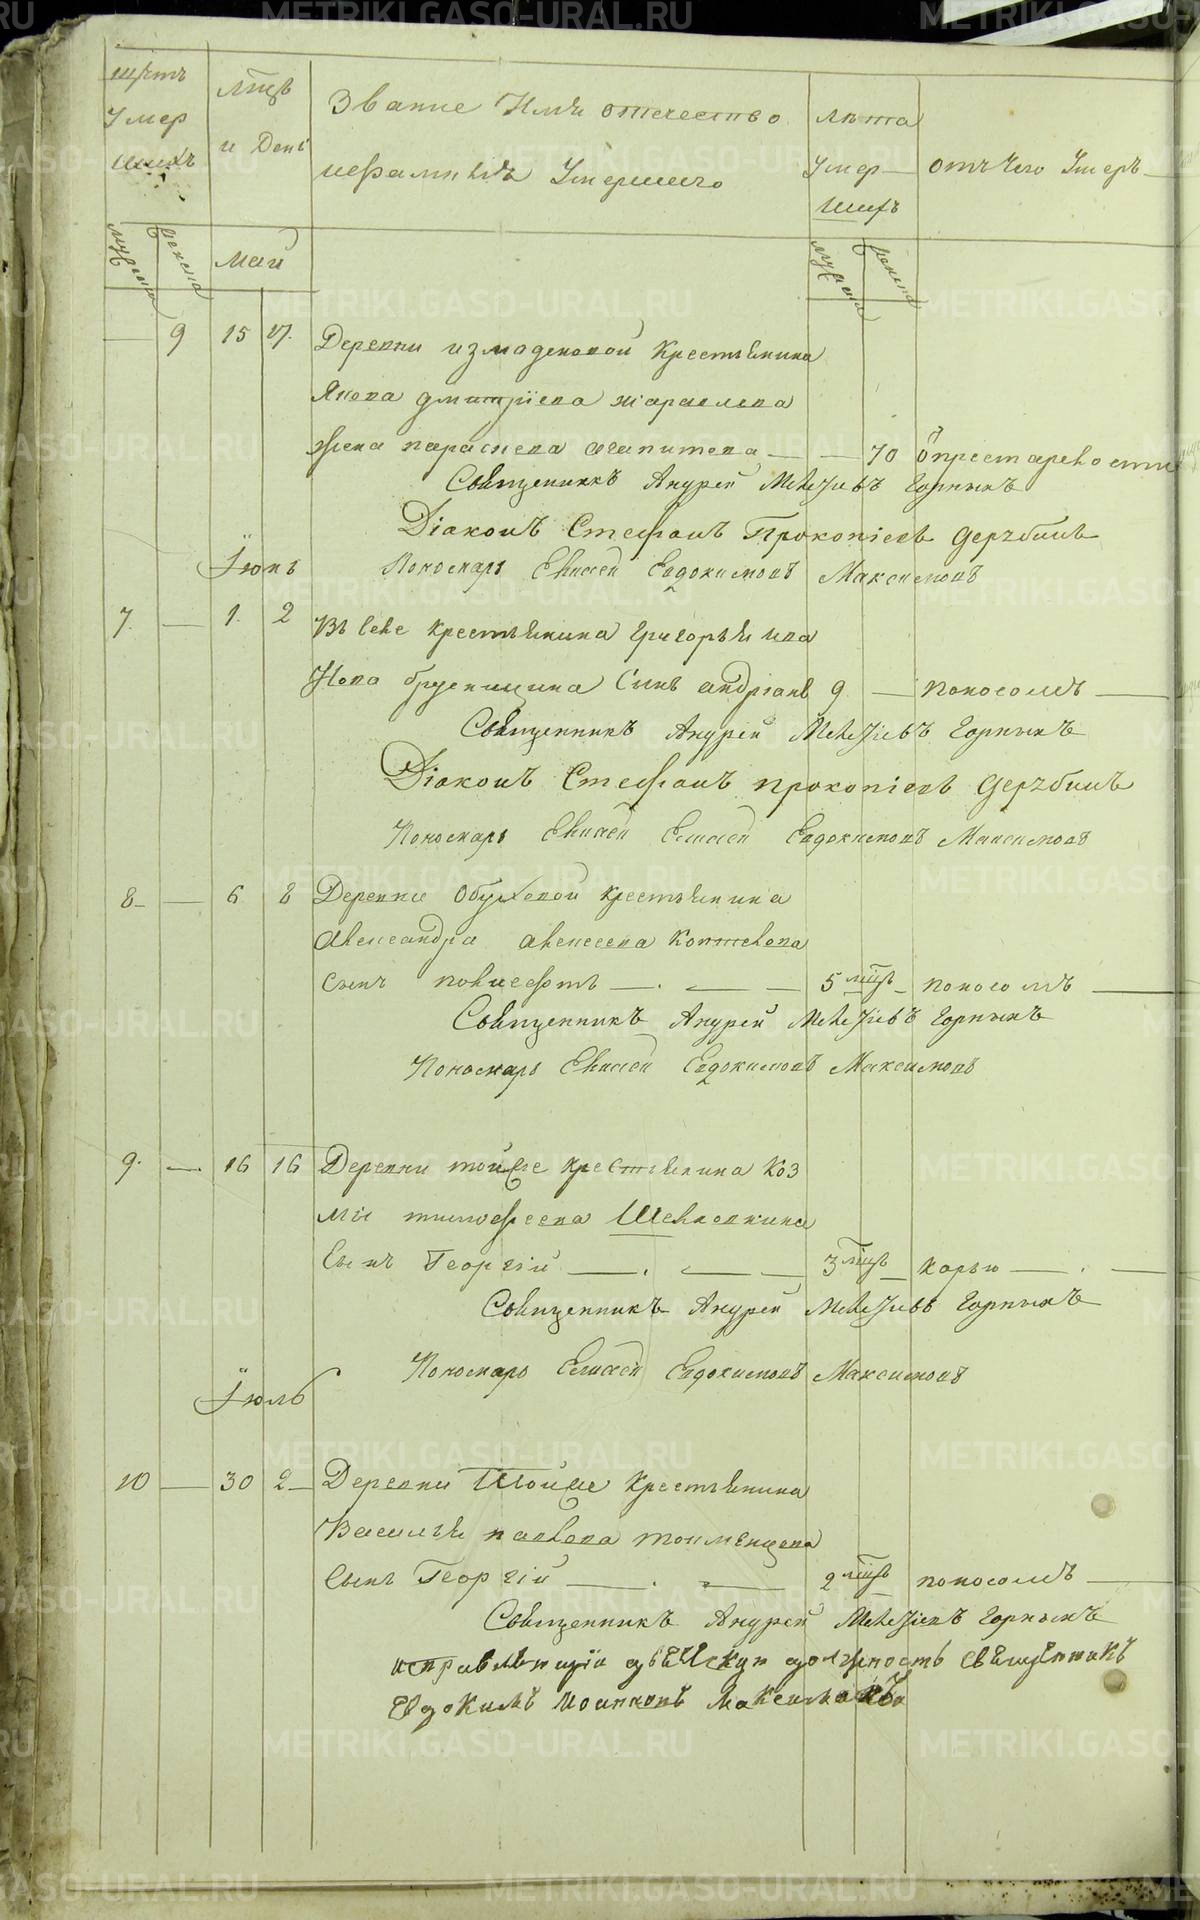 щетъ умерших
мцъ и день
Звание Имя отечество
и фамилія Умершего
лѣта умерших
отъ чего умеръ
мужеска
женска
Май
мужеска
женска
— 9 15 17. Деревни измоденовой крестьянина
Якова дмитріева журавлева
жена параскева агапитова — — 70 отпрестарелости
Священникъ Андрей Меѳодіевъ Горныхъ
Діаконъ Стефанъ Прокопіевъ Дерябинъ
Пономарь Елисей Евдокимовъ Максимовъ
Іюнь
7. — 1. 2 Въ селе крестьянина Григорья ива
нова брусницина Сынъ андріанъ 9 — поносомъ —
Священникъ Андрей Меѳодіевъ Горныхъ
Діаконъ Стефанъ прокопіевъ Дерябинъ
Пономарь Елисей Елисей Евдокимовъ Максимовъ
8 — — 6 8 Деревни Обуховой крестьянина
Александра алексеева коптелова
сынъ поліефктъ — . — — 5 мцъ — поносомъ —
Священникъ Андрей Меѳодіевъ Горныхъ
Пономарь Елисей Евдокимовъ Максимовъ
9. — 16 16 Деревни тойже крестьянина коз
мы тимофеева
Сынъ Георгій — . — — 3 мцъ — корью — . —
Священникъ Андрей Меѳодіевъ Горныхъ
Пономарь Елисей Евдокимовъ Максимовъ
Іюль
10 — 30 2 — Деревни Тойже крестьянина
Василья павлова
Сынъ Георгій — . — 2 мцъ поносомъ —
Священникъ Андрей Меѳодіевъ Горныхъ
исправляющій дьяческую должность священникъ
Евдокимъ Максимовъ
METRIKI.GASO-URAL.RU